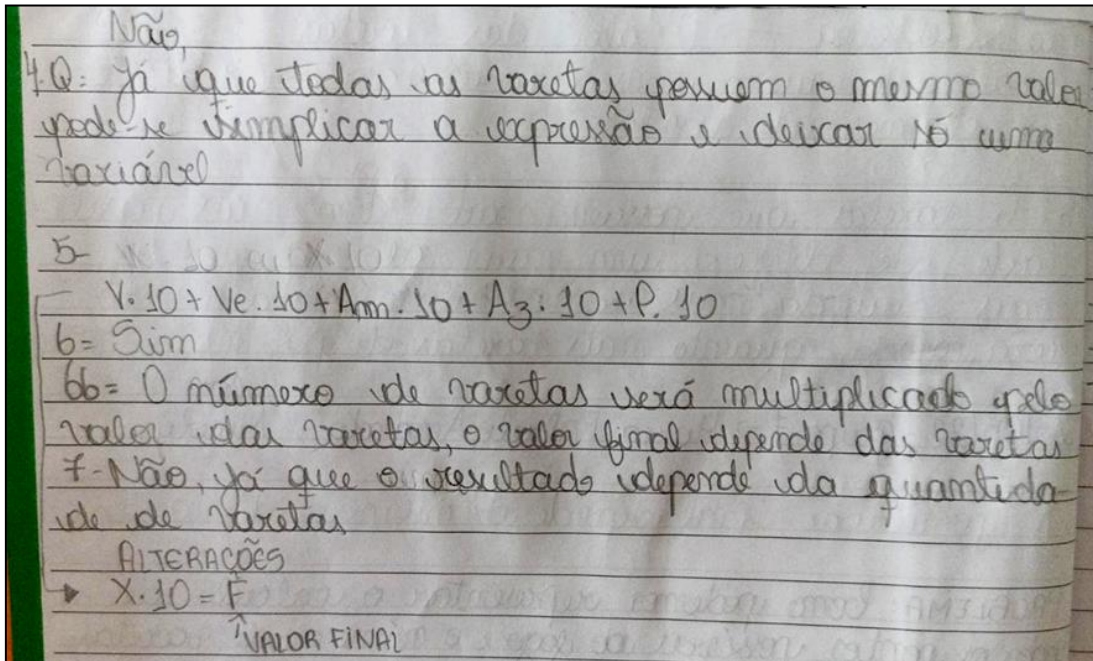 Não,
4.Q= Já que todas as varetas possuem o mesmo valor
pode-se simplicar a expressão e deixar só uma
variável
5-
V. 10 + Ve. 10 + Am. 10 + Az. 10 + P. 10
6= Sim
6b= O número de varetas será multiplicado pelo
valor das varetas, o valor final depende das varetas
7-Não, já que o resultado depende da quantida-
de de varetas
ALTERAÇÕES
X.10 = F
VALOR FINAL